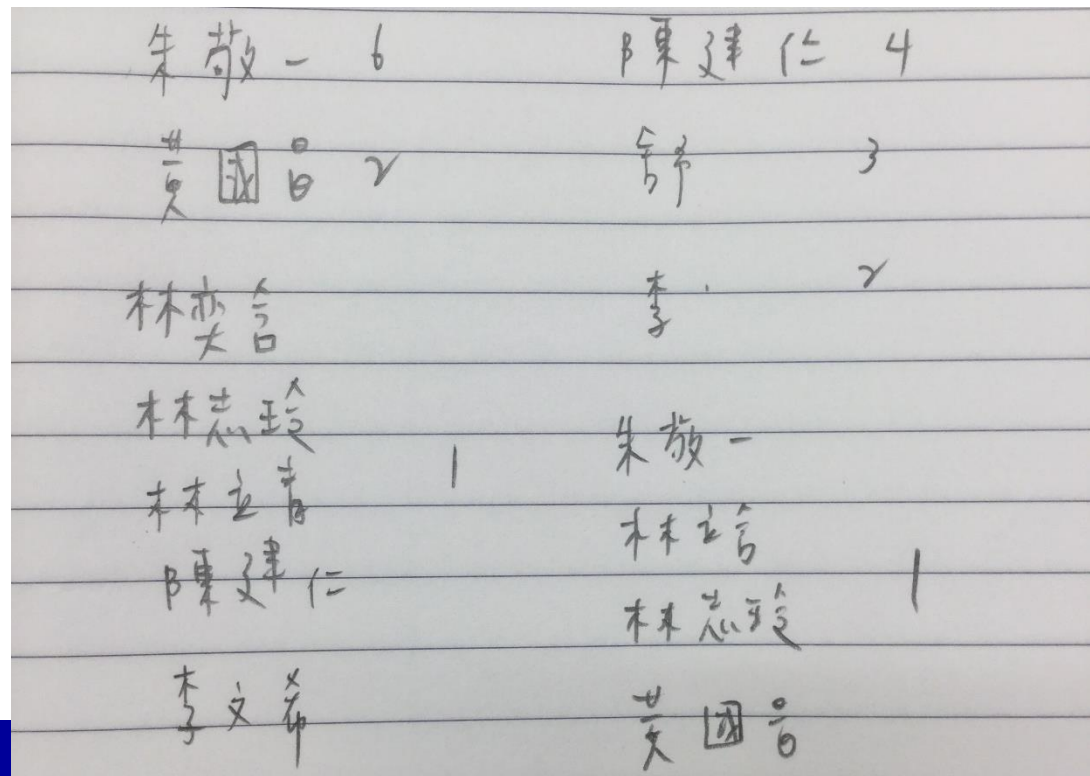 朱敬一 6
黃國昌 2
林奕含
林志玲
林立青 1
陳建仁
李文希
陳建仁 4
舒 3
李 2
朱敬一
林立
林志玲 1
黃國昌